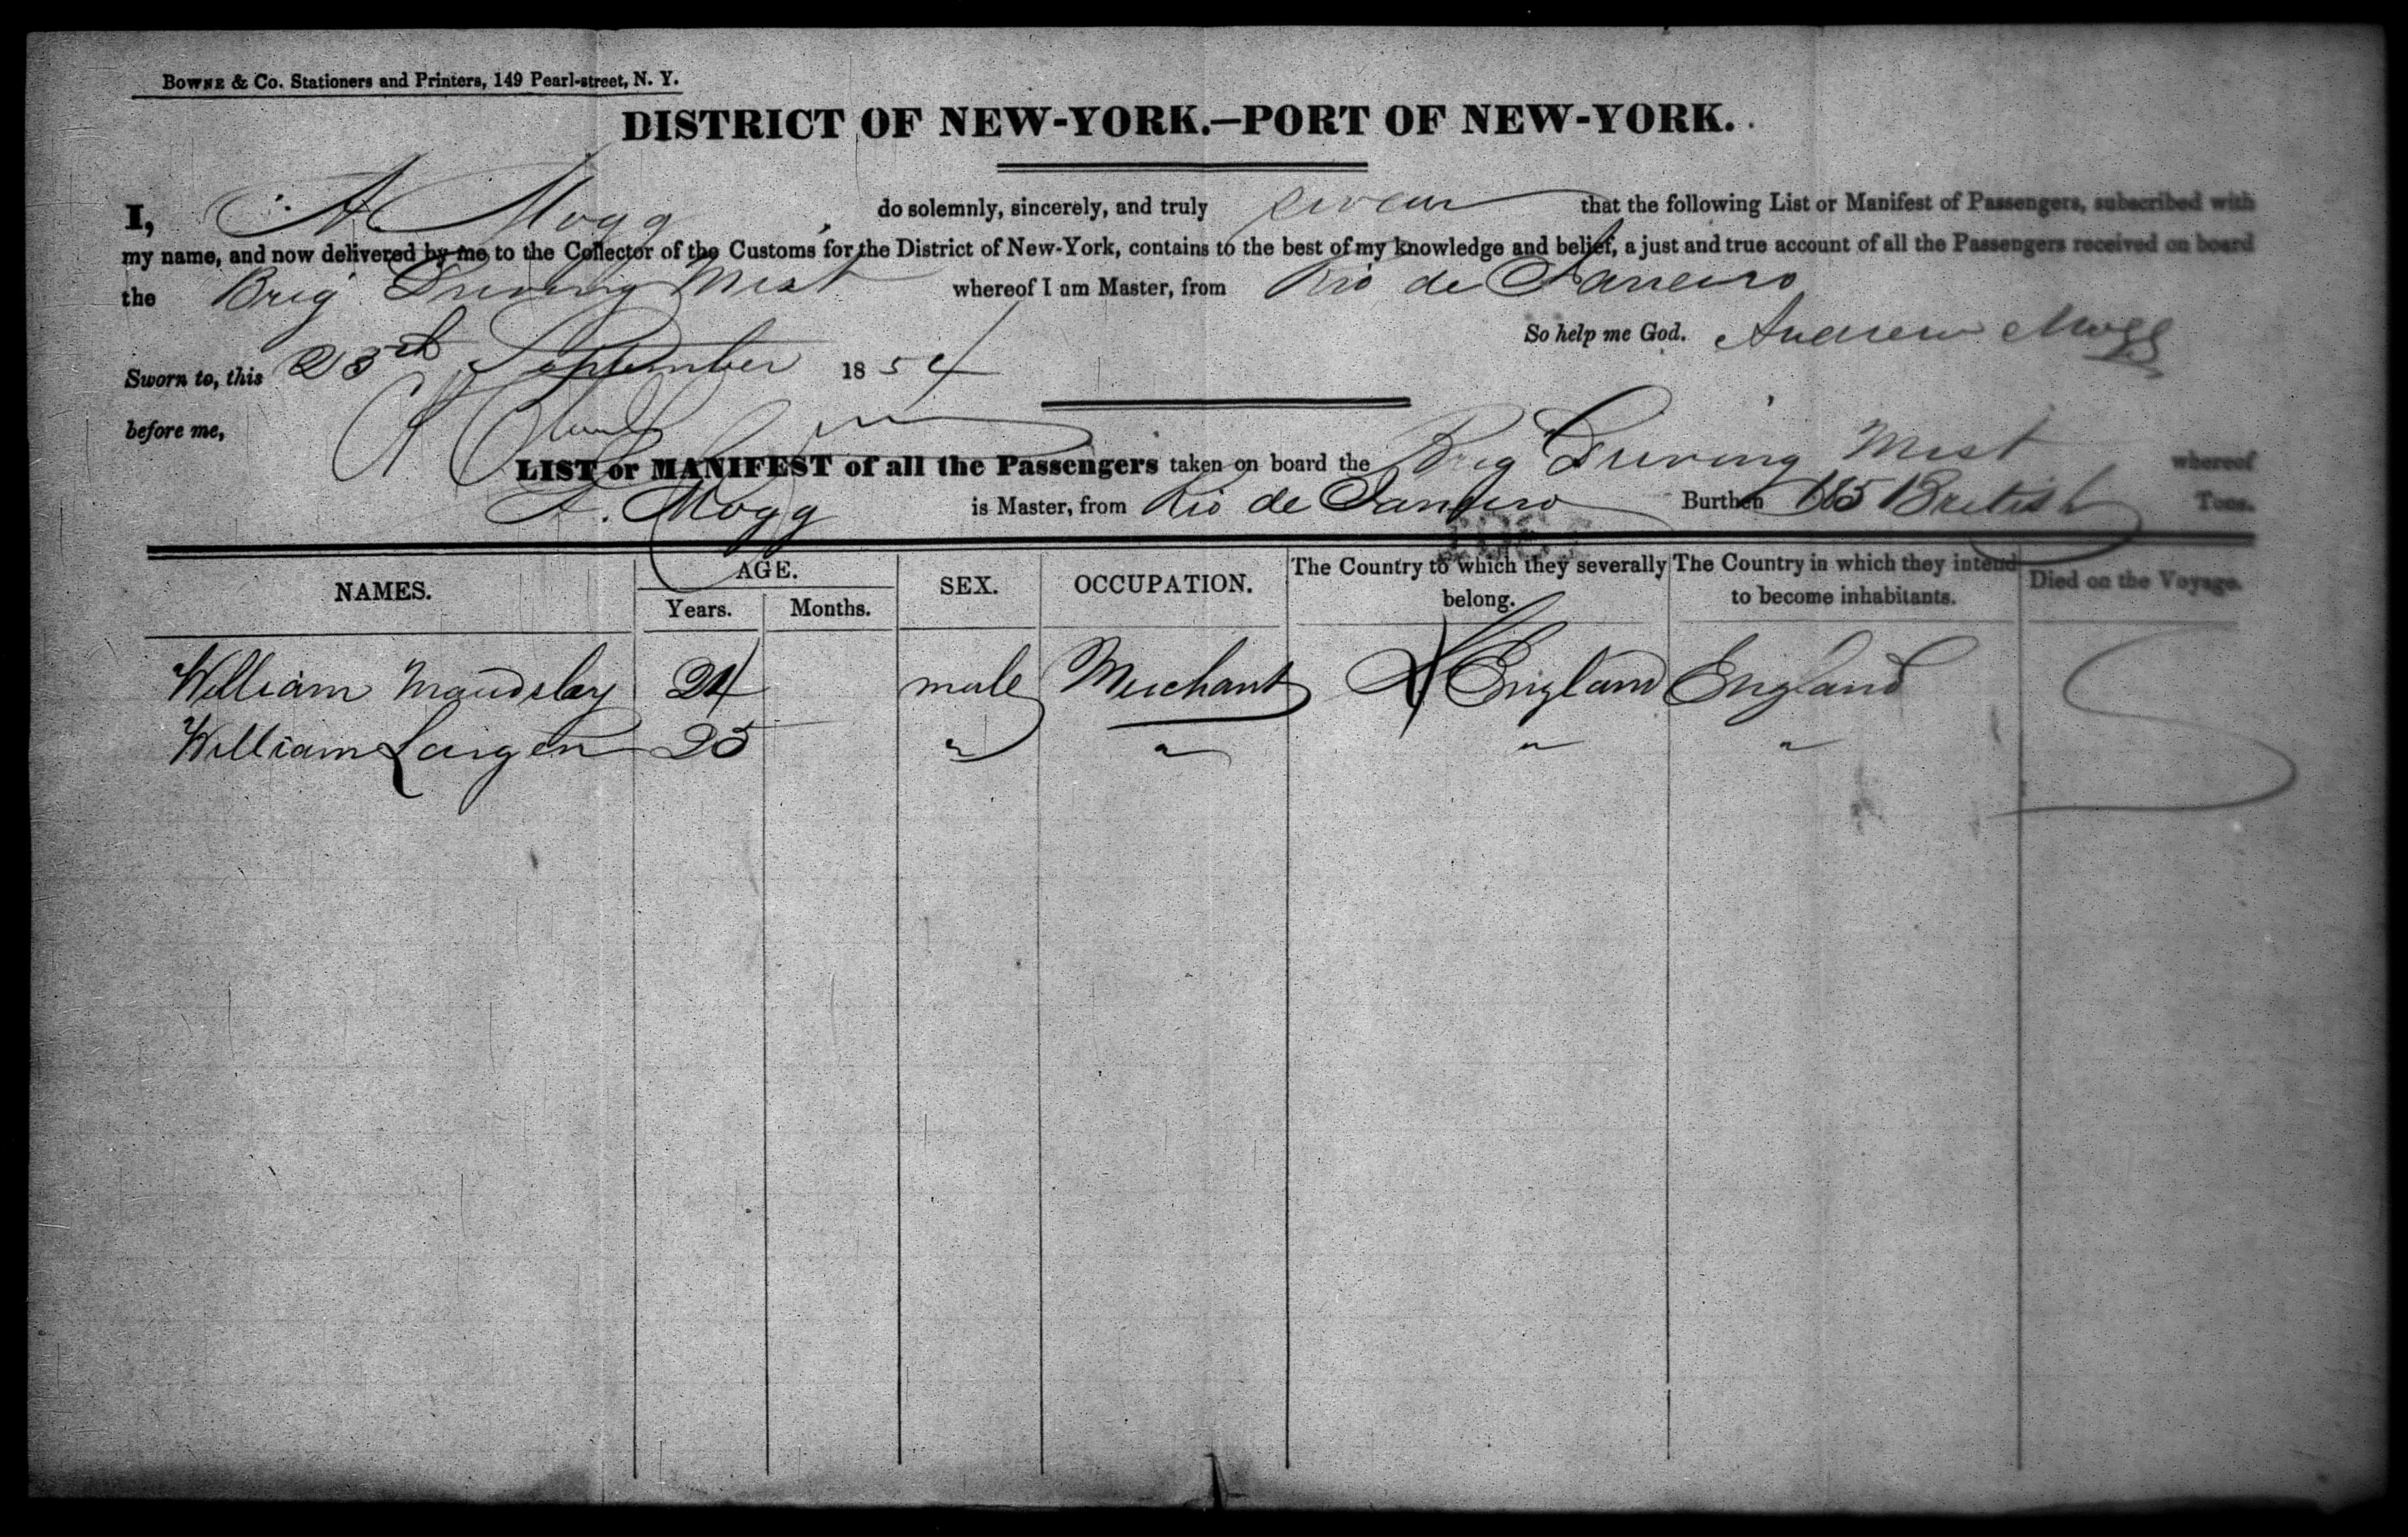 BOWNE & Co. Stationers and Printers, 149 Pearl-street, N. Y.
DISTRICT OF NEW-YORK.—PORT OF NEW-YORK.
I, A Mogg do solemnly, sincerely, and truly swear that the following List or Manifest of Passengers, subscribed with
my name, and now delivered by me to the Collector of the Customs for the District of New-York, contains to the best of my knowledge and belief, a just and true account of all the Passengers received on board
the Brig Driving Mist whereof I am Master, from Rio de Janeiro
So help me God. Andrew Mogg
Sworn to, this 23rd September 1854
before me,
LIST or MANIFEST of all the Passengers taken on board the Brig Driving Mist whereof
A. Mogg is Master, from Rio de Janeiro Burthen 185 British Tons.
NAMES. AGE. SEX. OCCUPATION. The Country to which they severally belong. The Country in which they intend to become inhabitants. Died on the Voyage.
Years. Months.
William Maudsley 24 male Merchant England England
William Largen 25 " " " "